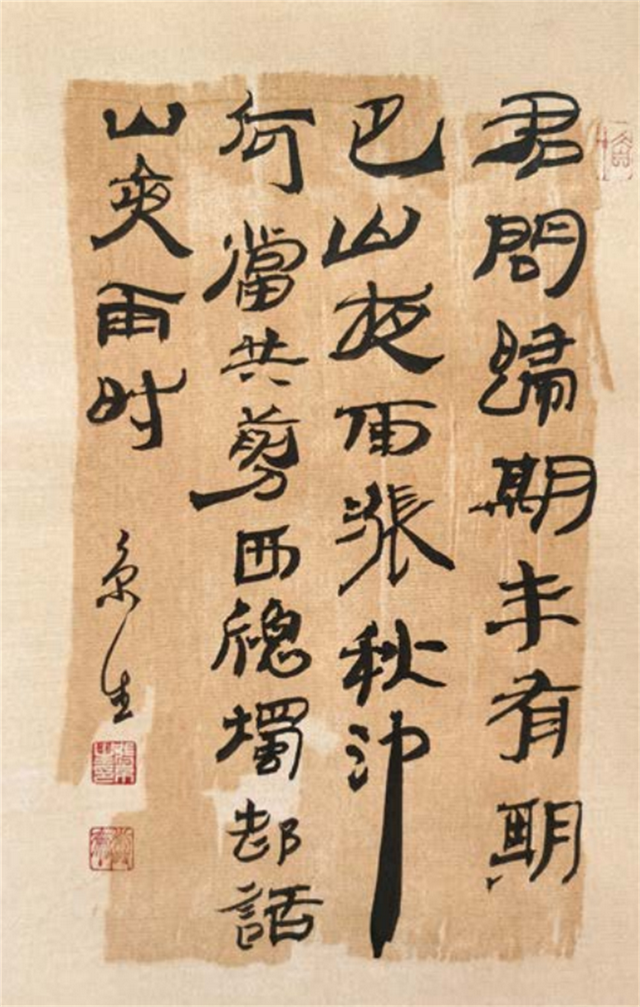 君問歸期未有期
巴山夜雨漲秋池
何當共剪西窗燭却話
山夜雨时
京生